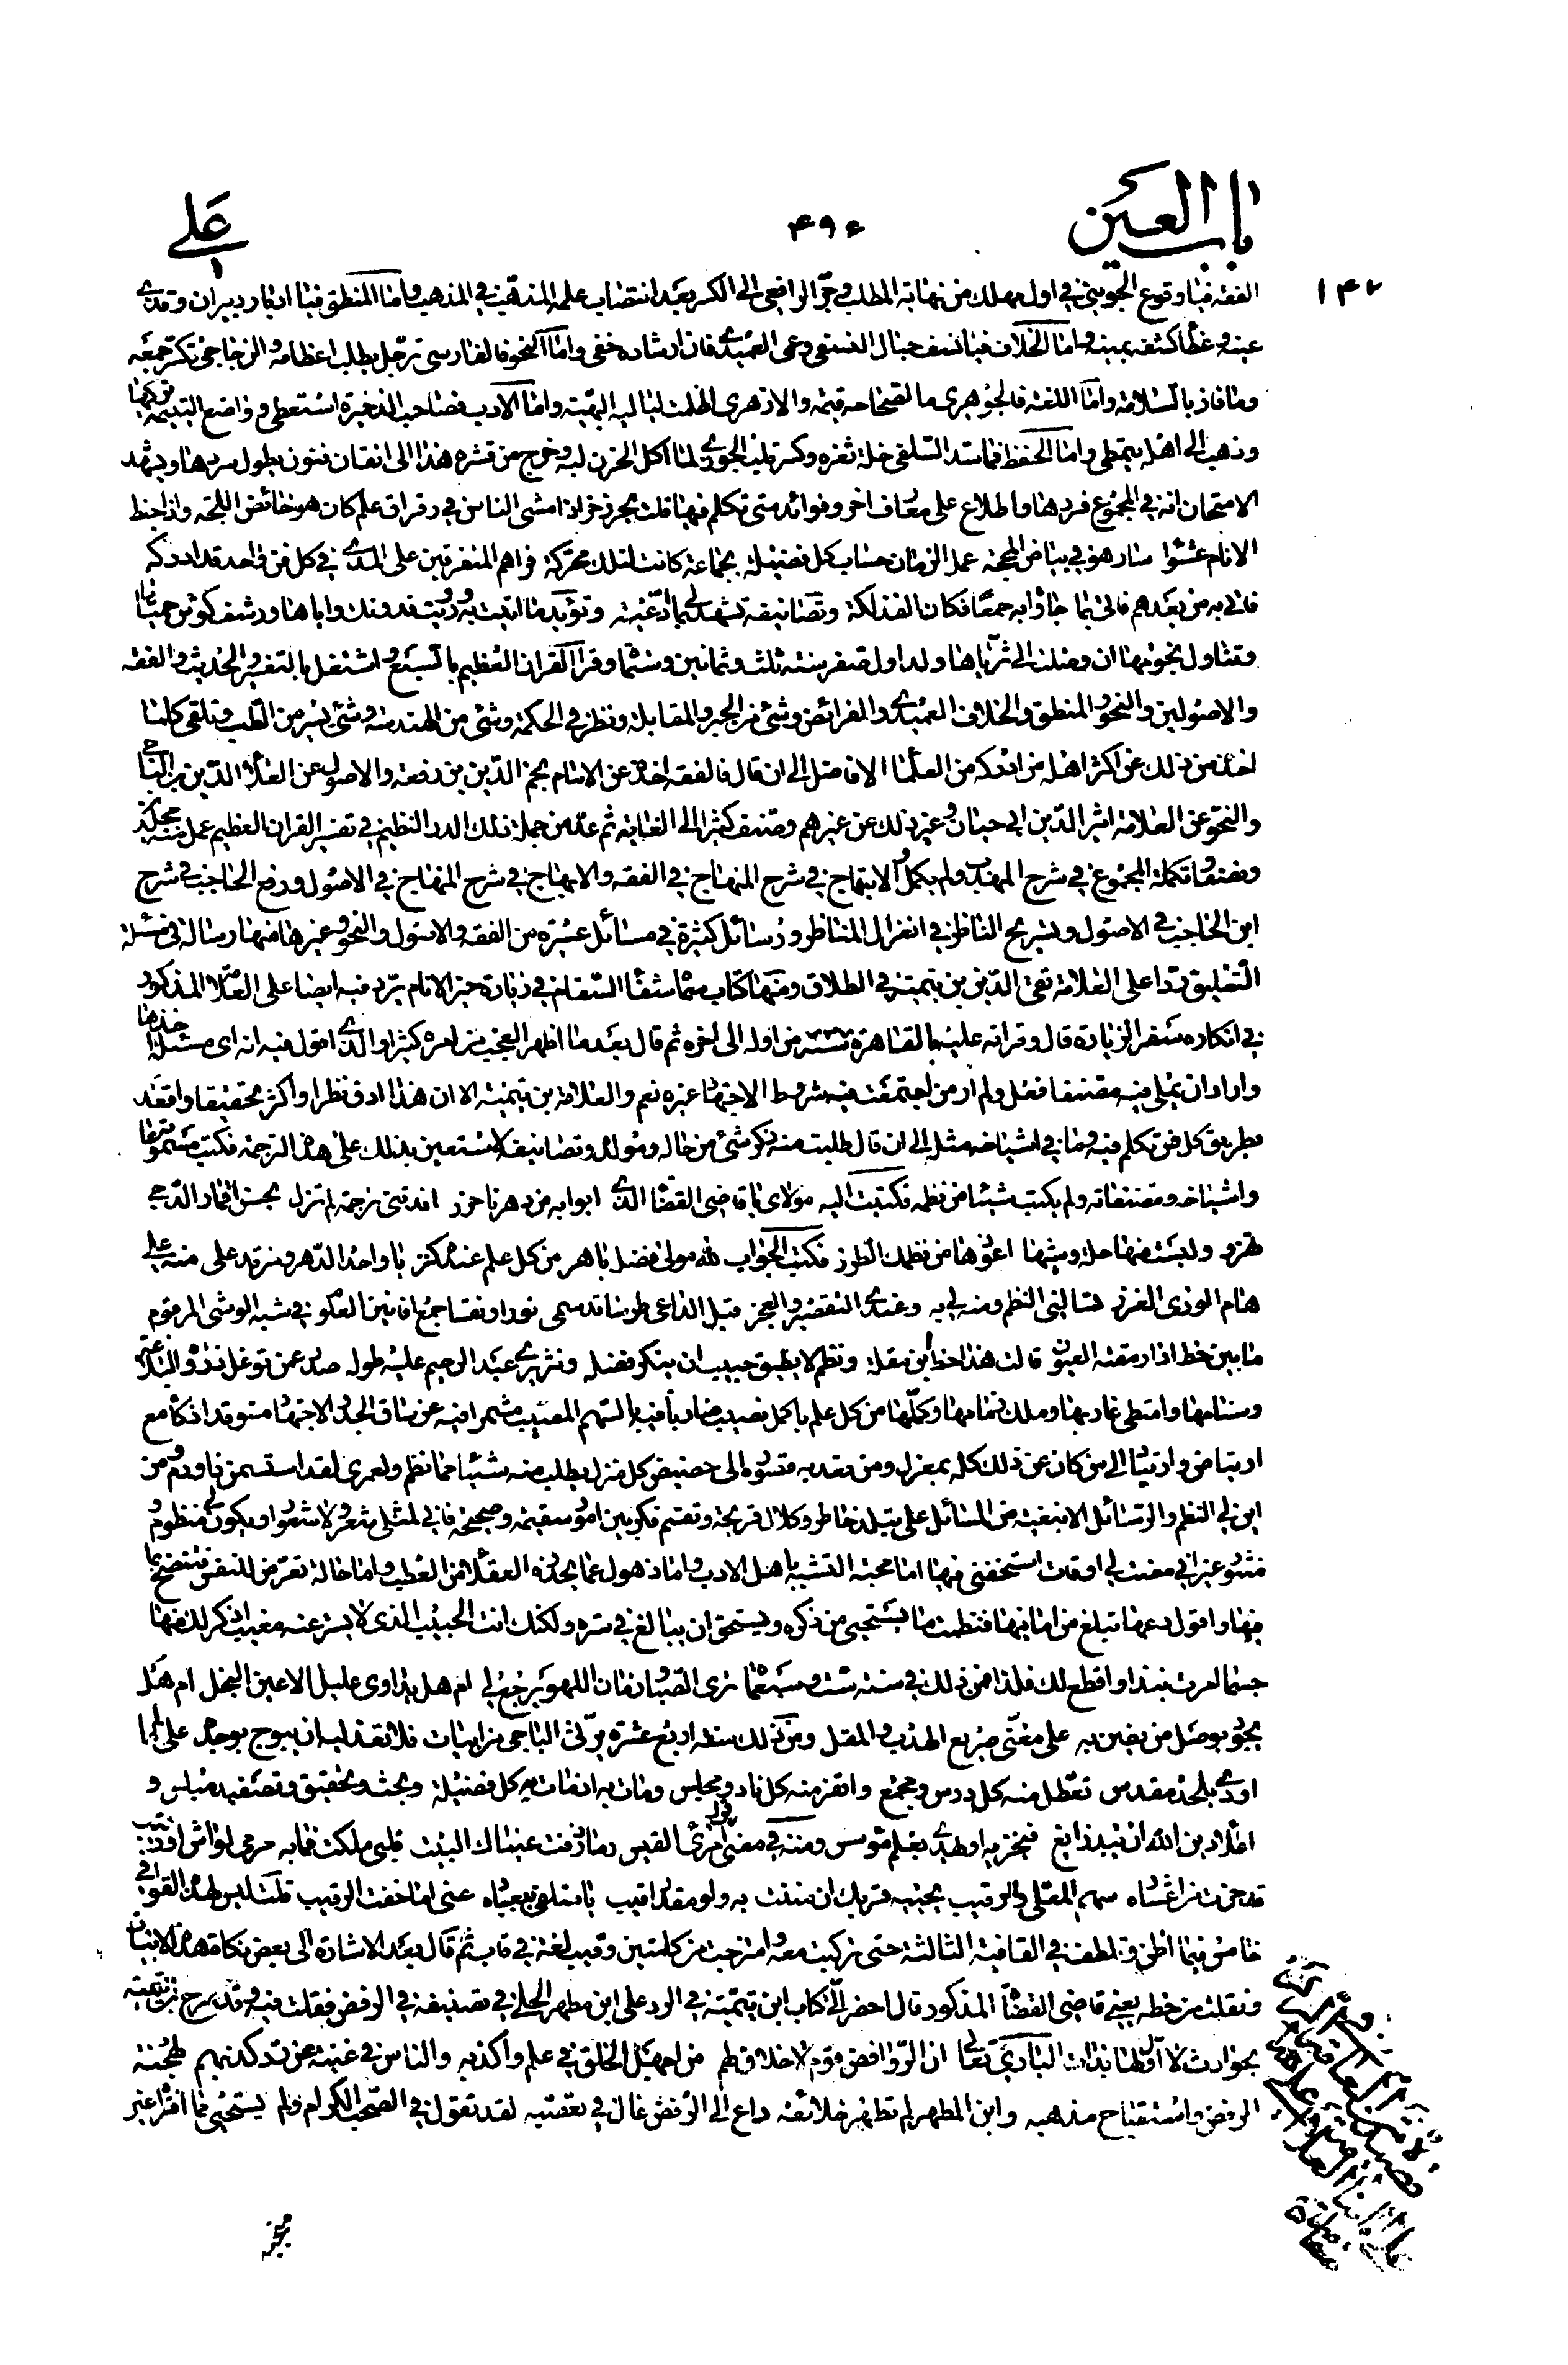 باب العين
٤٩٤
علي
١٤٢
الفقه فيا وقوع الجويني في اول مهلك من نهاية المطلب وجر الرافعي الى الكسر بعد انتصاب علمه المذهب في المذهب واما المنطق فيا ادبار دبيران وقذى
عينه وغطا كشفه يمينه واما الخلاف فيا نسف جبال النسفي وعمى العميدي فان ارشاده خفى واما النحو فالفارسي ترجل يطلب اعظامه والزجاجي تكسر جمعه
وما فاز بالسلامة واما اللغة فالجوهري ما لصحاحه قيمة والازهري اظلمت لياليه البهيمة واما الادب فصاحب الذخيرة استعطى وواضع اليتيمة تركها
وذهب الى اهله يتمطى واما الحفظ فما سد السلفي خلة ثغره وكسر قلب الجوزي لما اكل الحزن لبه وخرج من قشره هذا الى اتقان فنون يطول سردها ويشهد
الامتحان انه في المجموع فردها واطلاع على معارف اخر وفوائد متى تكلم فيها قلت بحر زخر اذا مشى الناس في رقراق علم كان هو خائض اللجة واذا خبط
الانام عشوا سار هو في بياض المحجة عمل الزمان حساب كل فضيلة بجماعة كانت لتلك محركة فراهم المتفرقين على المدى في كل فن واحد قد ادركه
فاتى به من بعدهم فاتى بما جاؤا به جمعا فكان الفذلكة وتصانيفه تشهد لي بما ادعيته وتؤيد ما اتيت به ورويت فدونك واياها ورشف كؤس حمياها
وتناول نجومها ان وصلت الى ثرياها ولد اول صفر سنة ثلث وثمانين وستما وقرأ القرآن العظيم بالسبع واشتغل بالتفسير والحديث والفقه
والاصولين والنحو والمنطق والخلاف العميدي والفرائض وشئ من الجبر والمقابلة ونظر في الحكمة وشئ من الهندسة وشئ يسير من الطب وتلقى كلما
اخذ من ذلك عن اكثر اهله من ادركه من العلما الافاضل الى ان قال فالفقه اخذه عن الامام نجم الدين بن رفعة والاصول عن العلا الدين الباجي
والنحو عن العلامة اثير الدين ابي حيان وغير ذلك عن غيرهم وصنف كثيرا الى الغاية ثم عد من جملة ذلك الدر النظيم في تفسير القرآن العظيم عمل منه مجلد
ونصفا وتكملة المجموع في شرح المهذب ولم يكمل والابتهاج في شرح المنهاج في الفقه والابهاج في شرح المنهاج في الاصول ورفع الحاجب في شرح
ابن الحاجب في الاصول وتسريح الناظر في انعزال المناظر ورسائل كثيرة في مسائل عسرة من الفقه والاصول والنحو وغيرها منها رسالة في مسئلة
التعليق ردا على العلامة تقي الدين بن تيمية في الطلاق ومنها كتاب سماه شفا السقام في زيارة خير الانام يرد فيه ايضا على العلا المذكور
في انكاره سفر الزيارة قال وقرأته عليه بالقاهرة سنة من اوله الى اخره ثم قال بعد ما اظهر العجب من امره كثيرا والذي اقول فيه انه اي مسئلة اخذها
واراد ان يملي فيه مصنفا فعل ولم ار من اجتمعت فيه شروط الاجتهاد غيره نعم والعلامة بن تيمية الا ان هذا ادق نظرا واكثر تحقيقا واقعد
بطريق كل فن تكلم فيه وما في اشياخه مثله الى ان قال طلبت منه ذكر شئ من حاله ومولده وتصانيفه لاستعين بذلك على هذه الترجمة فكتب مسموعاته
واشياخه ومصنفاته ولم يكتب شيئا من نظمه فكتبت اليه مولاي يا قاضي القضا الذي ابوابه من دهرنا حرز افدتني ترجمة لم تزل بحسن اقمار الدجى
تهزو ولبست منها حلة وشيها اعوزها من نظمك الطرز فكتب الجواب لله مولى فضله باهر من كل علم عنده كنز يا واحد الدهر ومن قد على منه على
هام الورى الغرز تسألني النظم ومن لي به وعندي التقصير والعجز قبل الداعي طرسا قد سمى نورا ونقسا جمع افانين العلوم في شبه الوشي المرقوم
ما بين خط اذا رمقته العيون قالت هذا خط ابن مقلة ونظم لا يطيق حبيب ان ينكر فضله ونثر يرى عبد الرحيم عليه طوله صدر عمن توغل
وسنامها وامتطى غاربها وملك زمامها وكملها من كل علم باكمل نصيب ضاربا فيه بالسهم المصيب مشمرا فيه عن ساق الجد والاجتهاد متوقدا ذكاء مع
ارتياض وارتياد الى من كان عن ذلك كله بمعزل ومن بعد به قصوه الى حضيض كل منزل يطلب منه شيئا مما نظم ولعمري لقد استسمن ذا ورم ومن
اين لي النظم والرسائل الا بنغبة من المسائل على تبلد خاطر وكلال قريحة وتقسم فكر بين امور سقيمة وصحيحة فاني لمثلي شعر ولا شعور او يكون لي منظوم
منثور غير اني مضت لي اوقات استخفني فيها اما محبة التشبه باهل الادب واما ذهول عما يحذره العقلا من العطب واما حالة تعرض للنفس فتنضح بما
فيها واقول دعها تبلغ من امانيها فنظمت ما يستحيى من ذكره ويستحق ان يبالغ في ستره ولكنك انت الحبيب الذي لا يستر عنه معيب اذكر لك منها
حسبما امرت نبذا واقطع لك فلذا فمن ذلك في سنة ست وسبعما ترى الصبا وزمان اللهو يرجع لي ام هل يداوي عليل الاعين النجل ام هل
يجود بوصل من يضن به على معنى صريع الهدب والمقل ومن ذلك سنة اربع عشرة يرثي الباجي من ابيات فلا تعذليه ان يبوح بوجده على
اودى بلحد مقدس تعطل منه كل درس ومجمع واقفر منه كل ناد ومجلس ومات به اذ مات به كل فضيلة وبحث وتحقيق وتصفيد مبلس و
اعلاء دين الله ان يبد زايغ فيخزيه او يهدي بعلم مؤسس ومنه في معنى قول امرئ القيس وما ذرفت عيناك البيت قلبي ملكت فما به مرمى لواش او رقيب
قد حزت من اعشاره سهم المعلى والرقيب يحييه قربك ان مننت به ولو مقدار قيب يا متلفي ببعاده عني اما خفت الرقيب قلت ليس لهذه القوافي
خامس فيما اظن وتلطف في القافية الثالثة حتى تركبت معه وامتزجت من كلمتين وقيب لغة في قاب ثم قال بعد الاشارة الى بعض نكات هذه الابيات
ونقلت من خطه يعني قاضي القضا المذكور قال احضر الي كتاب ابن تيمية في الرد على ابن مطهر الحلي في تصنيفه في الرفض فقلت فيه وقد صرح ابن تيمية
بحوادث لا اول لها بذات الباري تعالى ان الروافض قوم لا خلاق لهم من اجهل الخلق في علم واكذبه والناس في غنية عن رد كذبهم لهجنة
الرفض واستقباح مذهبه وابن المطهر لم تطهر خلائقه داع الى الرفض غال في تعصبه لقد تقول في الصحب الكرام ولم يستحيي مما افتراه غير